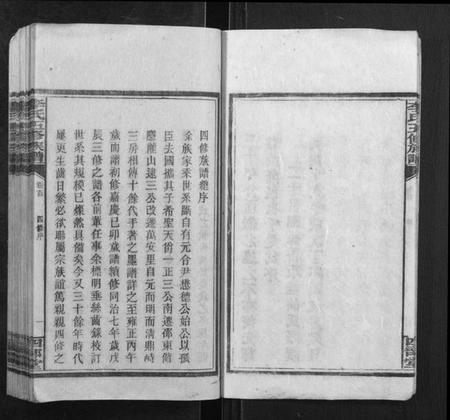 四修族譜總序
余族家乘世系斷自有元合尹懋德公始公以孤
臣去國攜其子希聖天衢一正三公南遷邵東衡
麓離山遠三公改遷萬安里自元而明而清鼎峙
三房相傳十餘代手著之墨譜詳之至雍正丙午
歲而譜初修嘉慶己卯歲譜續修同治七年歲戊
辰三修之譜各前董任事余標明垂絲齒錄校訂
世系其規模已燦然具備矣今又三十餘年時代
屢更生齒日繁必欲聯屬宗族誼篤親親四修之
李氏五修族譜
卷首
四修序
四部堂
李氏五修族譜